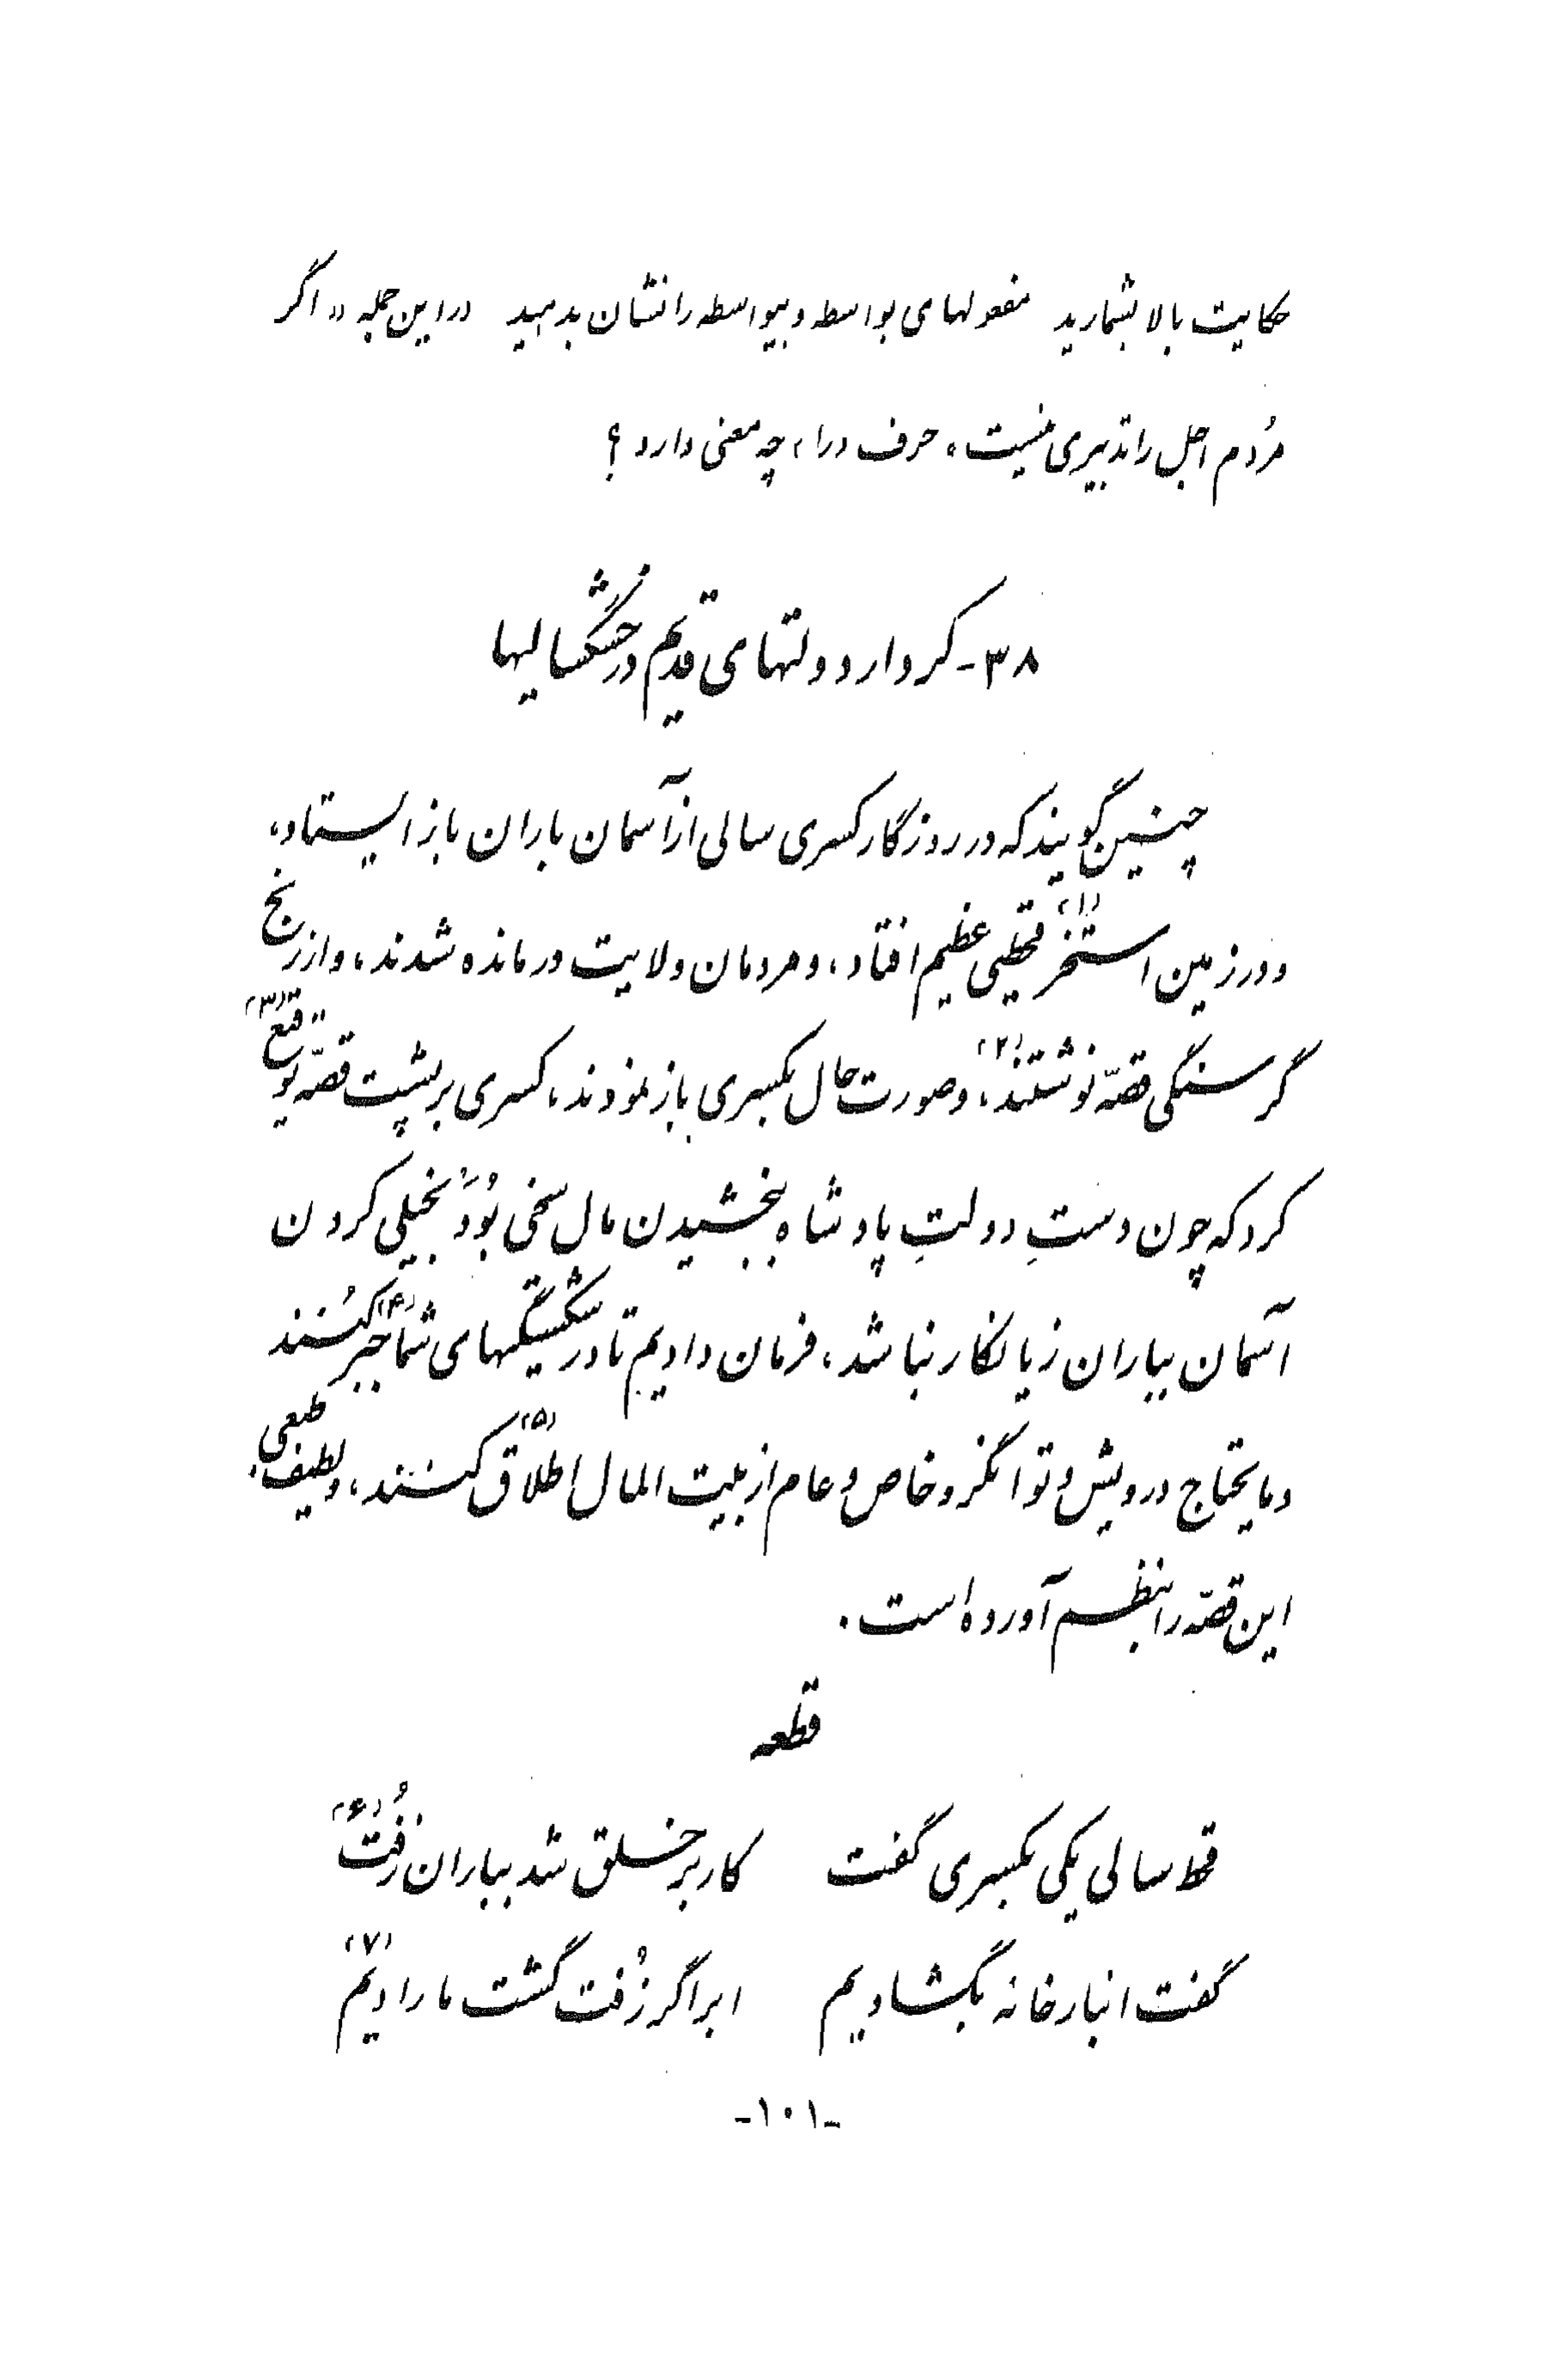 حکایت بالا بشمارید مفعولهای بواسطه و بیواسطه را نشان بدهید در این جمله « اگر
مُردم اجل را تدبیری نیست » حرف « را » چه معنی دارد ؟
۳۸- کردار دولتهای قدیم در خُشگسالیها
چنین گویند که در روزگار کسری سالی از آسمان باران باز ایستاد،
و در زمین استخر (۱) قحطی عظیم افتاد، و مردمان ولایت درمانده شدند، و از رنج
گرسنگی قصّه نوشتند (۲)، و صورت حال بکسری باز نمودند، کسری بر پشت قصّه توقیع (۳)
کرد که چون دستِ دولتِ پادشاه ببخشیدن مال سخی بُوَد بخیلی کردن
آسمان بباران زیانکار نباشد، فرمان دادیم تا در شکستگیهای شما جبر (۴) کُنند
و ما یحتاج درویش و توانگر و خاص و عام از بیت المال اطلاق (۵) کنند، و لطیف طبعی
این قصّه را بنظم آورده است .
قطعه
قحط سالی یکی بکسری گفت کار بر خلق شد بباران زُفت (۶)
گفت انبارخانه بگشادیم ابر اگر زُفت گشت ما رادیم (۷)
-۱۰۱-